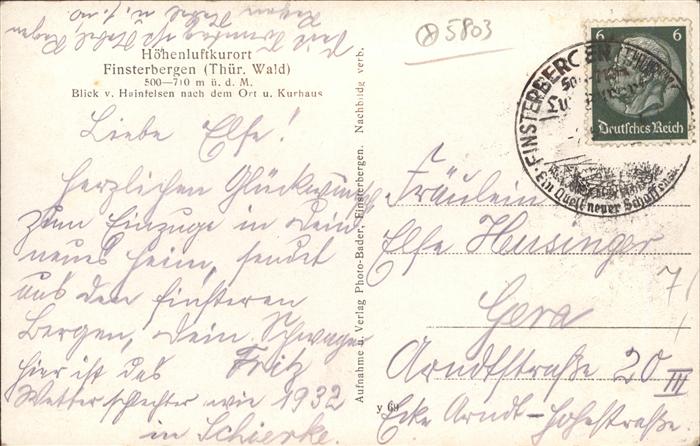 Seit Sonntag ist Nebel Regen
Regen Nebel u. s. w.
⊗ 5803
Höhenluftkurort
Finsterbergen (Thür. Wald)
500—710 m ü. d. M.
Blick v. Hainfelsen nach dem Ort u. Kurhaus
Liebe Else!
herzlichen Glückwunsch
zum Einzuge in Dein
neues Heim, sendet
aus den finsteren
Bergen, Dein Schwager
Fritz
hier ist das
Wetter schlechter wie 1932
in Schierke.
Aufnahme u. Verlag Photo-Bader, Finsterbergen. Nachbildg verb.
y 69
6 6
Deutsches Reich
FINSTERBERGEN
Ein Quell neuer Schaffens
Fräulein
Else Heusinger
Gera
Arndtstraße 20 III
Ecke Arndt-Hohestraße.
7/